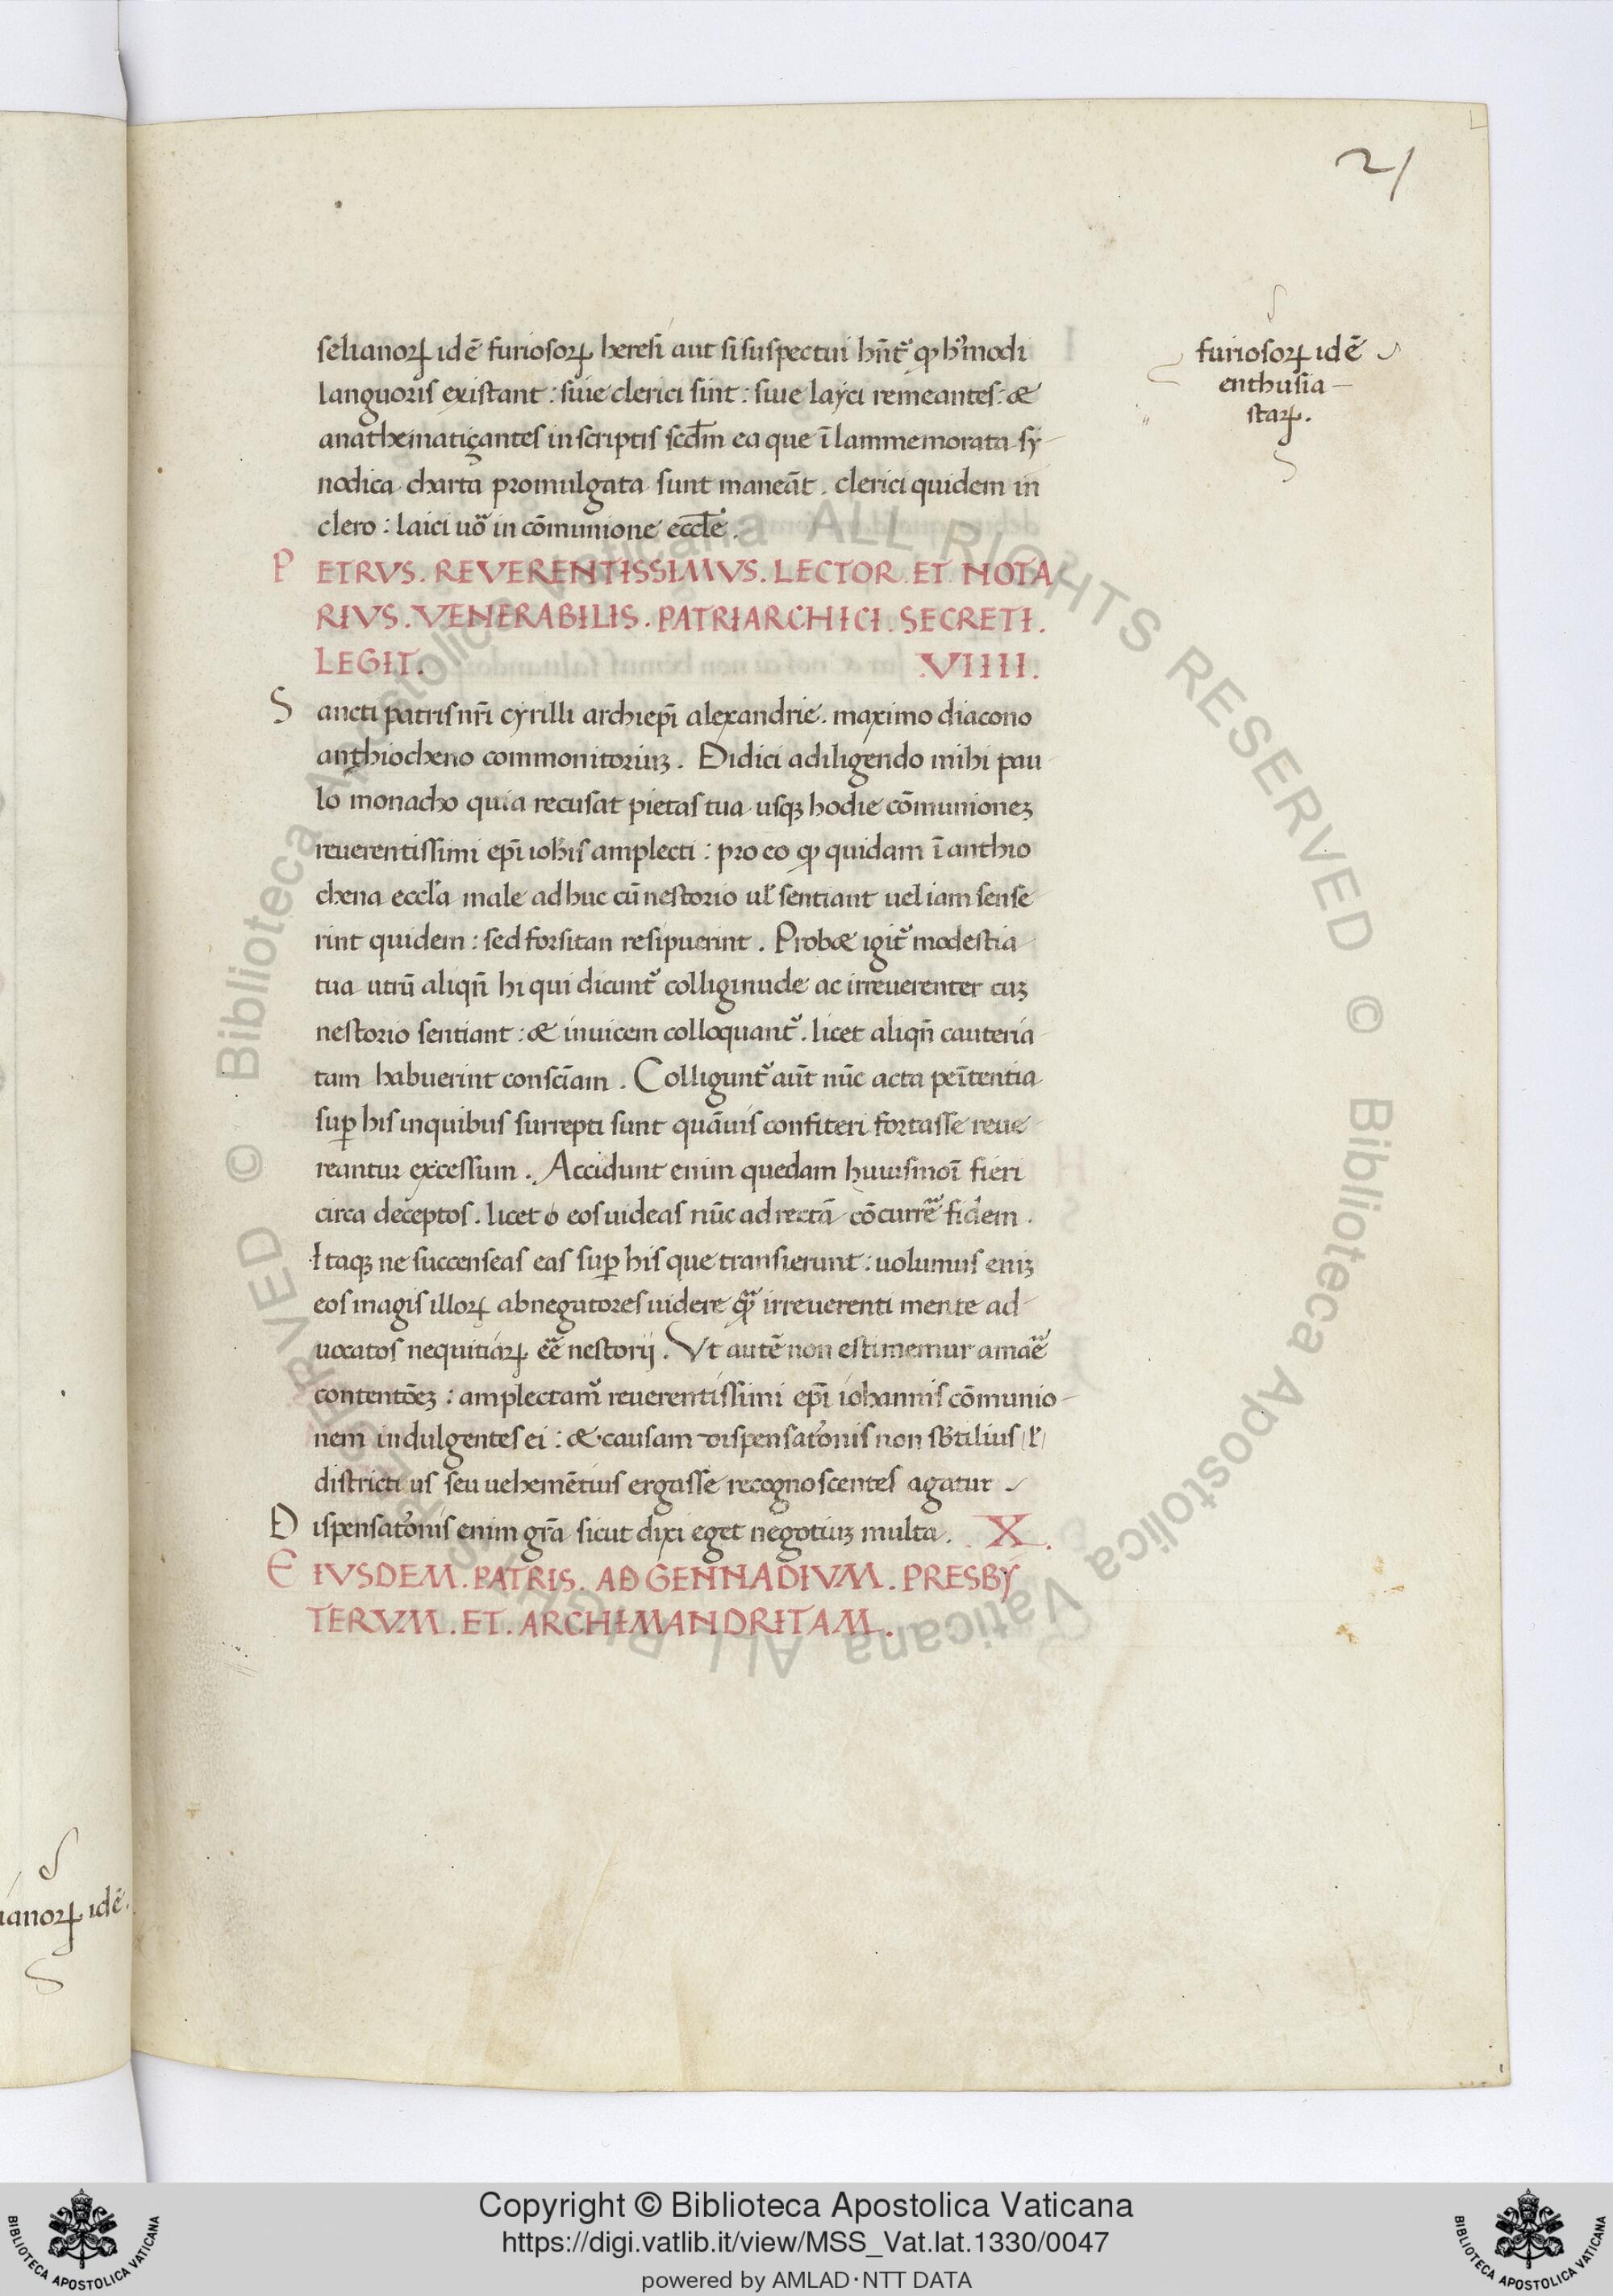 21
selianoꝝ idē furiosoꝝ heresi aut si suspectui hn̄t᷑ ꝙ hꝰmodi
languoris existant : siue clerici sint : siue layci remeantes : &
anathematiçantes in scriptis scd̄m ea que ī lammemorata sy-
nodica charta promulgata sunt maneāt . clerici quidem in
clero : laici uo᷑ in cōmunione eccl̄e .
PETRVS . REVERENTISSIMVS . LECTOR . ET . NOTA
RIVS . VENERABILIS . PATRIARCHICI . SECRETI .
LEGIT . .VIIII.
Sancti patris nr̄i cyrilli archiepī alexandrie . maximo diacono
anthiocheno commonitoriuꝫ . Didici adiligendo mihi pau-
lo monacho quia recusat pietas tua usqꝫ hodie cōmunioneꝫ
reuerentissimi epī ioh̄is amplecti : pro eo ꝙ quidam ī anthio
chena eccl̄a male adhuc cū nestorio ul̄ sentiant uel iam sense
rint quidem : sed forsitan resipuerint . Prob& igit᷑ modestia
tua utrū aliqn̄ hi qui dicunt᷑ colligi nude ac irreuerenter cuꝫ
nestorio sentiant : & inuicem colloquant᷑ . licet aliqn̄ cauteria
tam habuerint consciām . Colligunt᷑ aūt nūc acta penītentia
suꝑ his inquibus surrepti sunt quāuis confiteri fortasse reue
reantur excessum . Accidunt enim quedam huiusmoī fieri
circa deceptos . licet o eos uideas nūc ad rectā cōcurre᷑ fidem .
Itaqꝫ ne succenseas eas suꝑ his que transierunt : uolumus eniꝫ
eos magis illoꝝ abnegatores uidere qᷓ irreuerenti mente ad-
uocatos nequitiaꝝ ee᷑ nestorij . Vt autē non estimemur amae᷑
contentōeꝫ : amplectam᷑ reuerentissimi epī iohannis cōmunio-
nem indulgentes ei : & causam dispensatōnis non sb̄tilius l̄
districti us seu uehemētius ergasse recognoscentes agatur
Dispensatōnis enim gr̄a sicut dixi eget negotiuꝫ multa . .X.
EIVSDEM . PATRIS . AD GENNADIVM . PRESBY
TERVM . ET . ARCHIMANDRITAM .
furiosoꝝ idē
enthusia-
staꝝ .
ianoꝝ idē.
© Biblioteca Apostolica Vaticana ALL RIGHTS RESERVED © Biblioteca Apostolica Vaticana ALL RIGHTS RESERVED
Copyright © Biblioteca Apostolica Vaticana
https://digi.vatlib.it/view/MSS_Vat.lat.1330/0047
powered by AMLAD·NTT DATA
BIBLIOTECA APOSTOLICA VATICANA
BIBLIOTECA APOSTOLICA VATICANA